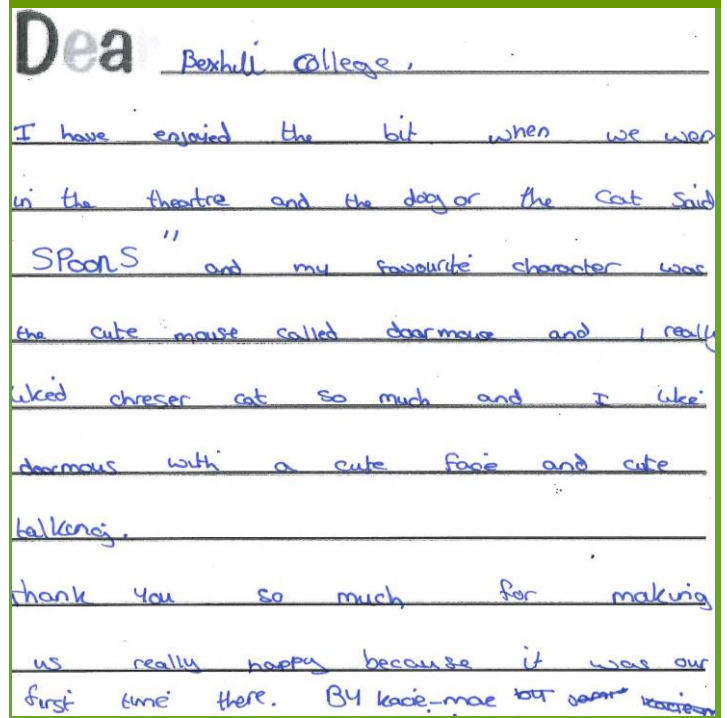 Dear Bexhill College,
I have enjoied the bit when we wer
in the theartre and the dog or the Cat Said
SPoonS " and my favourite character was
the cute mouse called doormouse and I really
liked chreser cat so much and I like
doormous with a cute face and cute
talking.
thank you so much for making
us really happy because it was our
first time there. BY kacie-mae